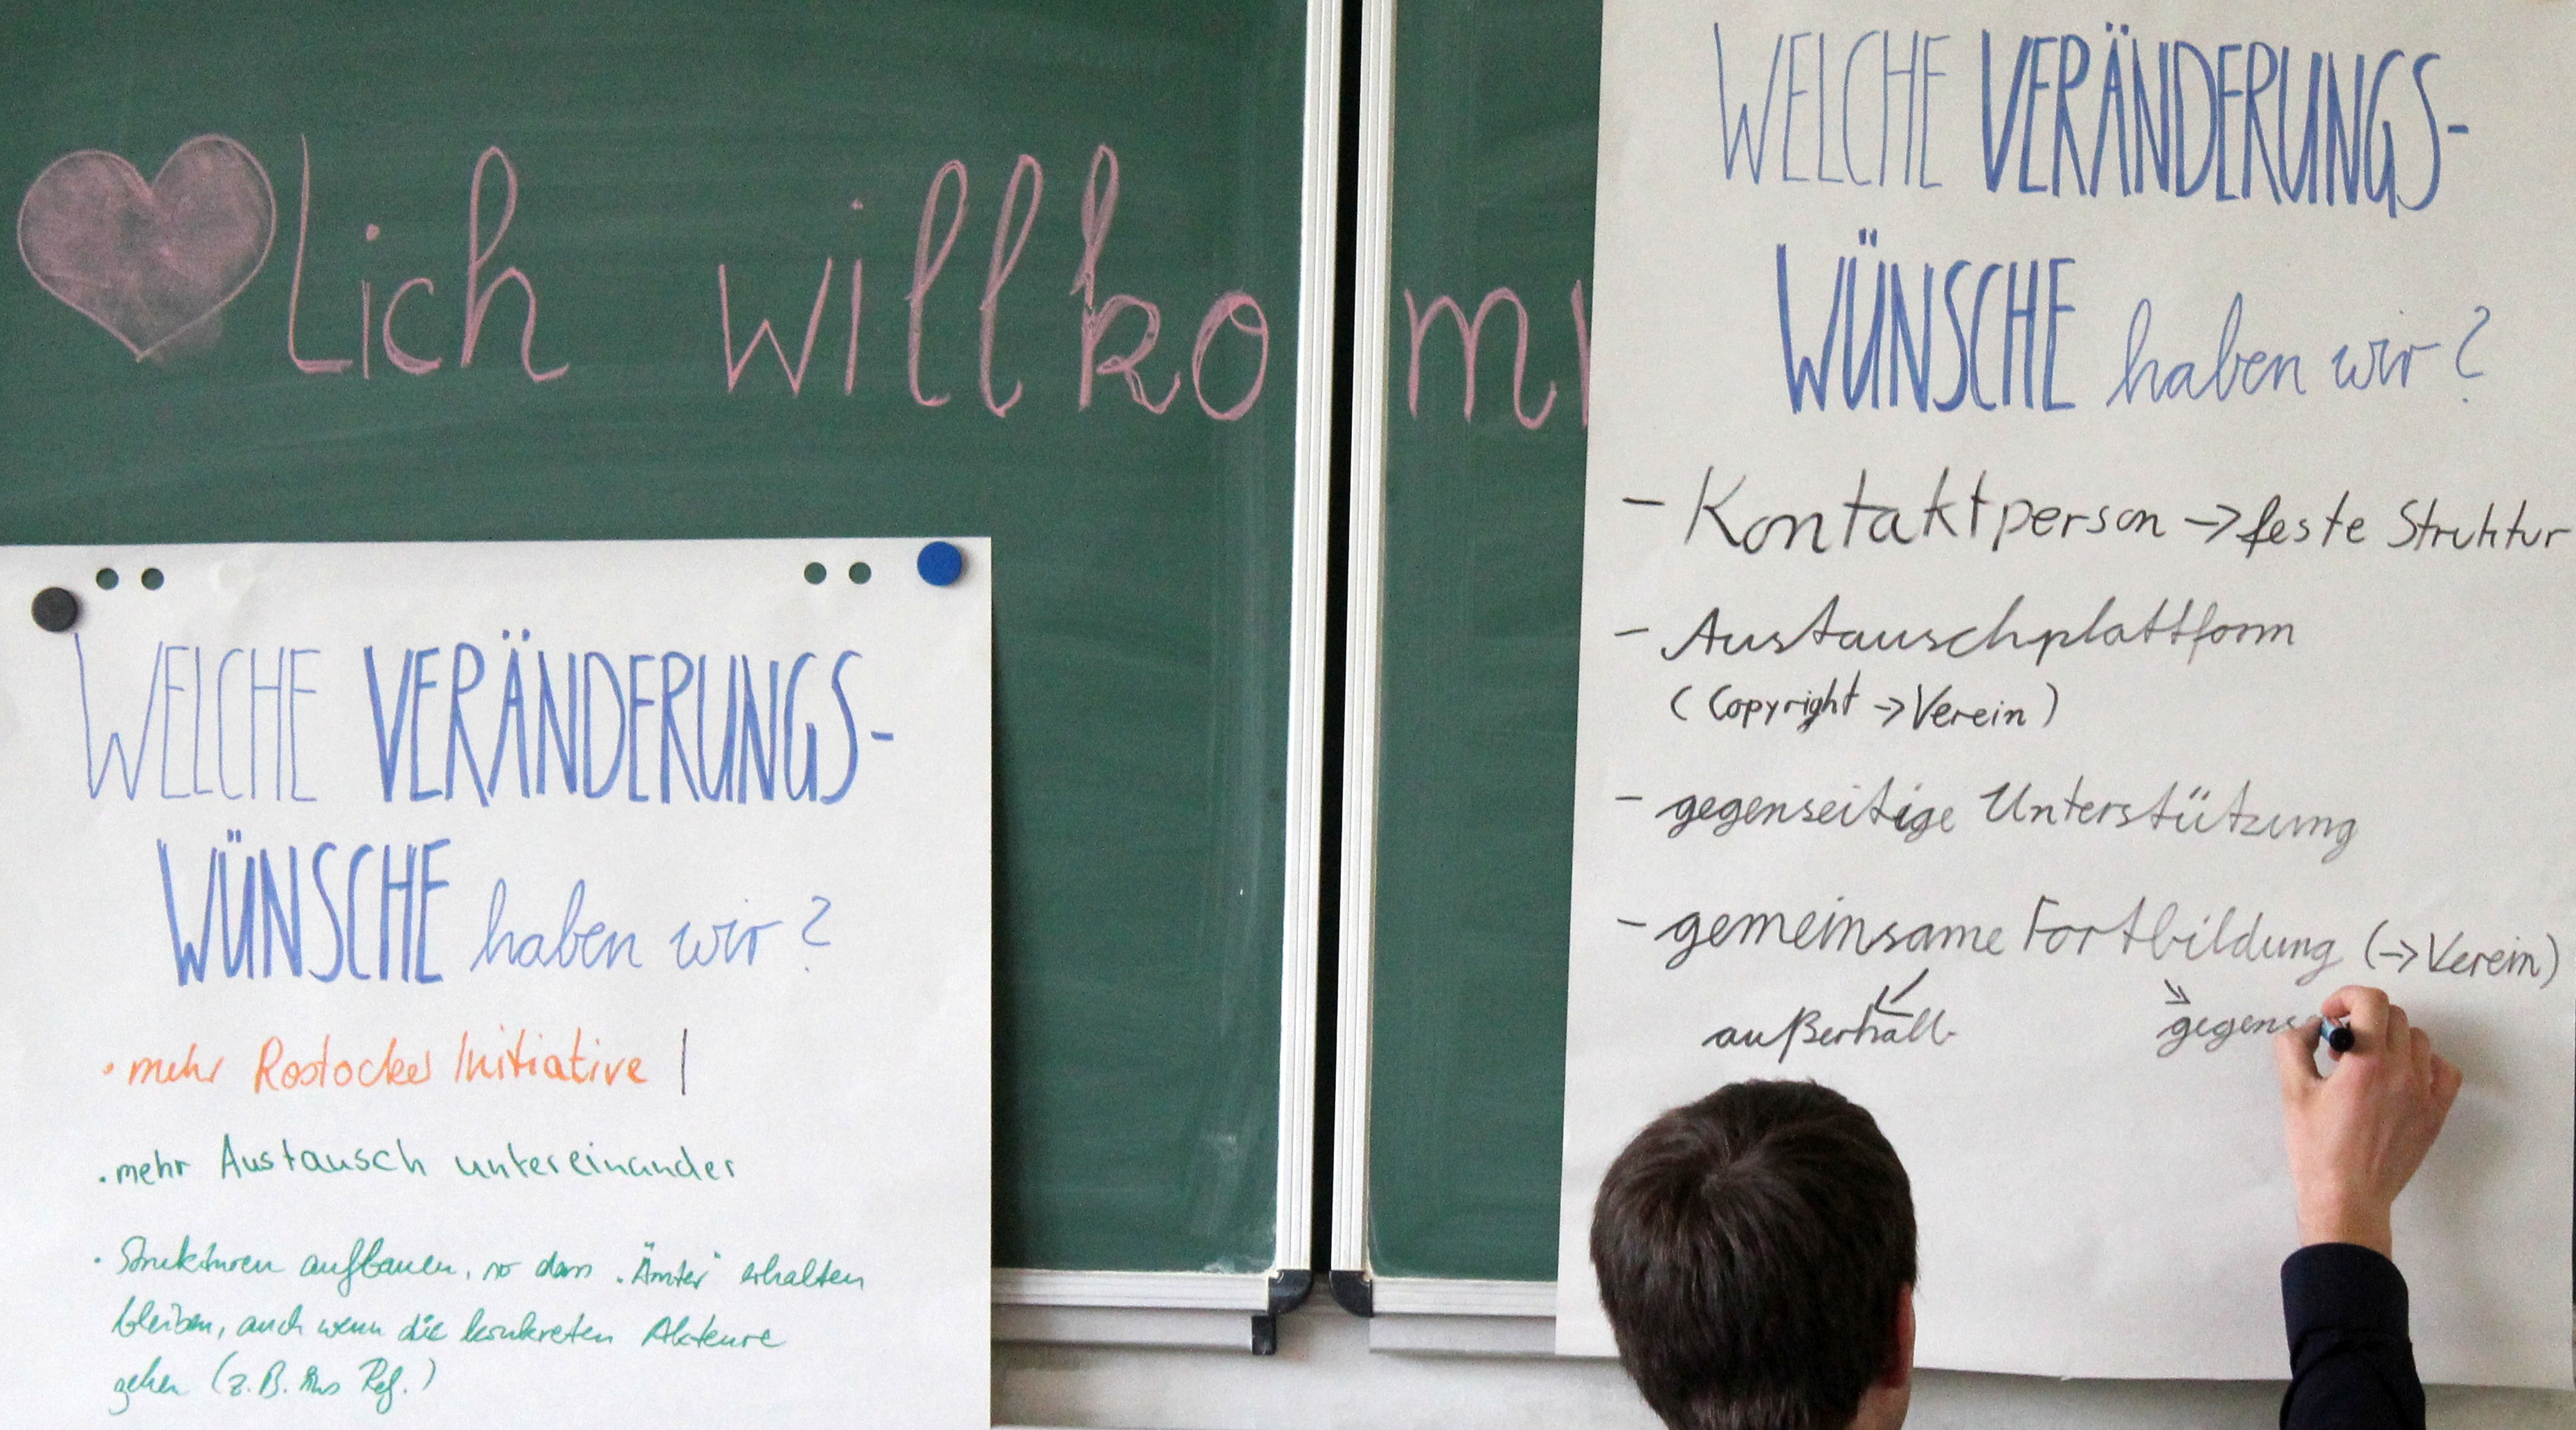 Lich willkom
WELCHE VERÄNDERUNGS-
WÜNSCHE haben wir?
• mehr Rostocker Initiative |
• mehr Austausch untereinander
• Strukturen aufbauen, so dass "Ämter" erhalten
bleiben, auch wenn die konkreten Akteure
gehen (z.B. ins Ref.)
WELCHE VERÄNDERUNGS-
WÜNSCHE haben wir?
- Kontaktperson -> feste Struktur
- Austauschplattform
(Copyright -> Verein)
- gegenseitige Unterstützung
- gemeinsame Fortbildung (-> Verein)
außerhalb gegens